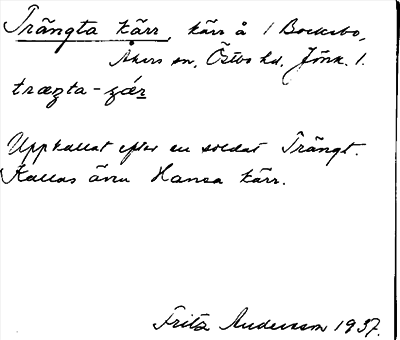 Trängta kärr, kärr å 1 Bocksbo,
Åkers sn, Östbo hd, Jönk. l.
træŋta-ɕær
Uppkallat efter en soldat Trängt.
Kallas även Hansa kärr.
Fritz Andersson 1937.